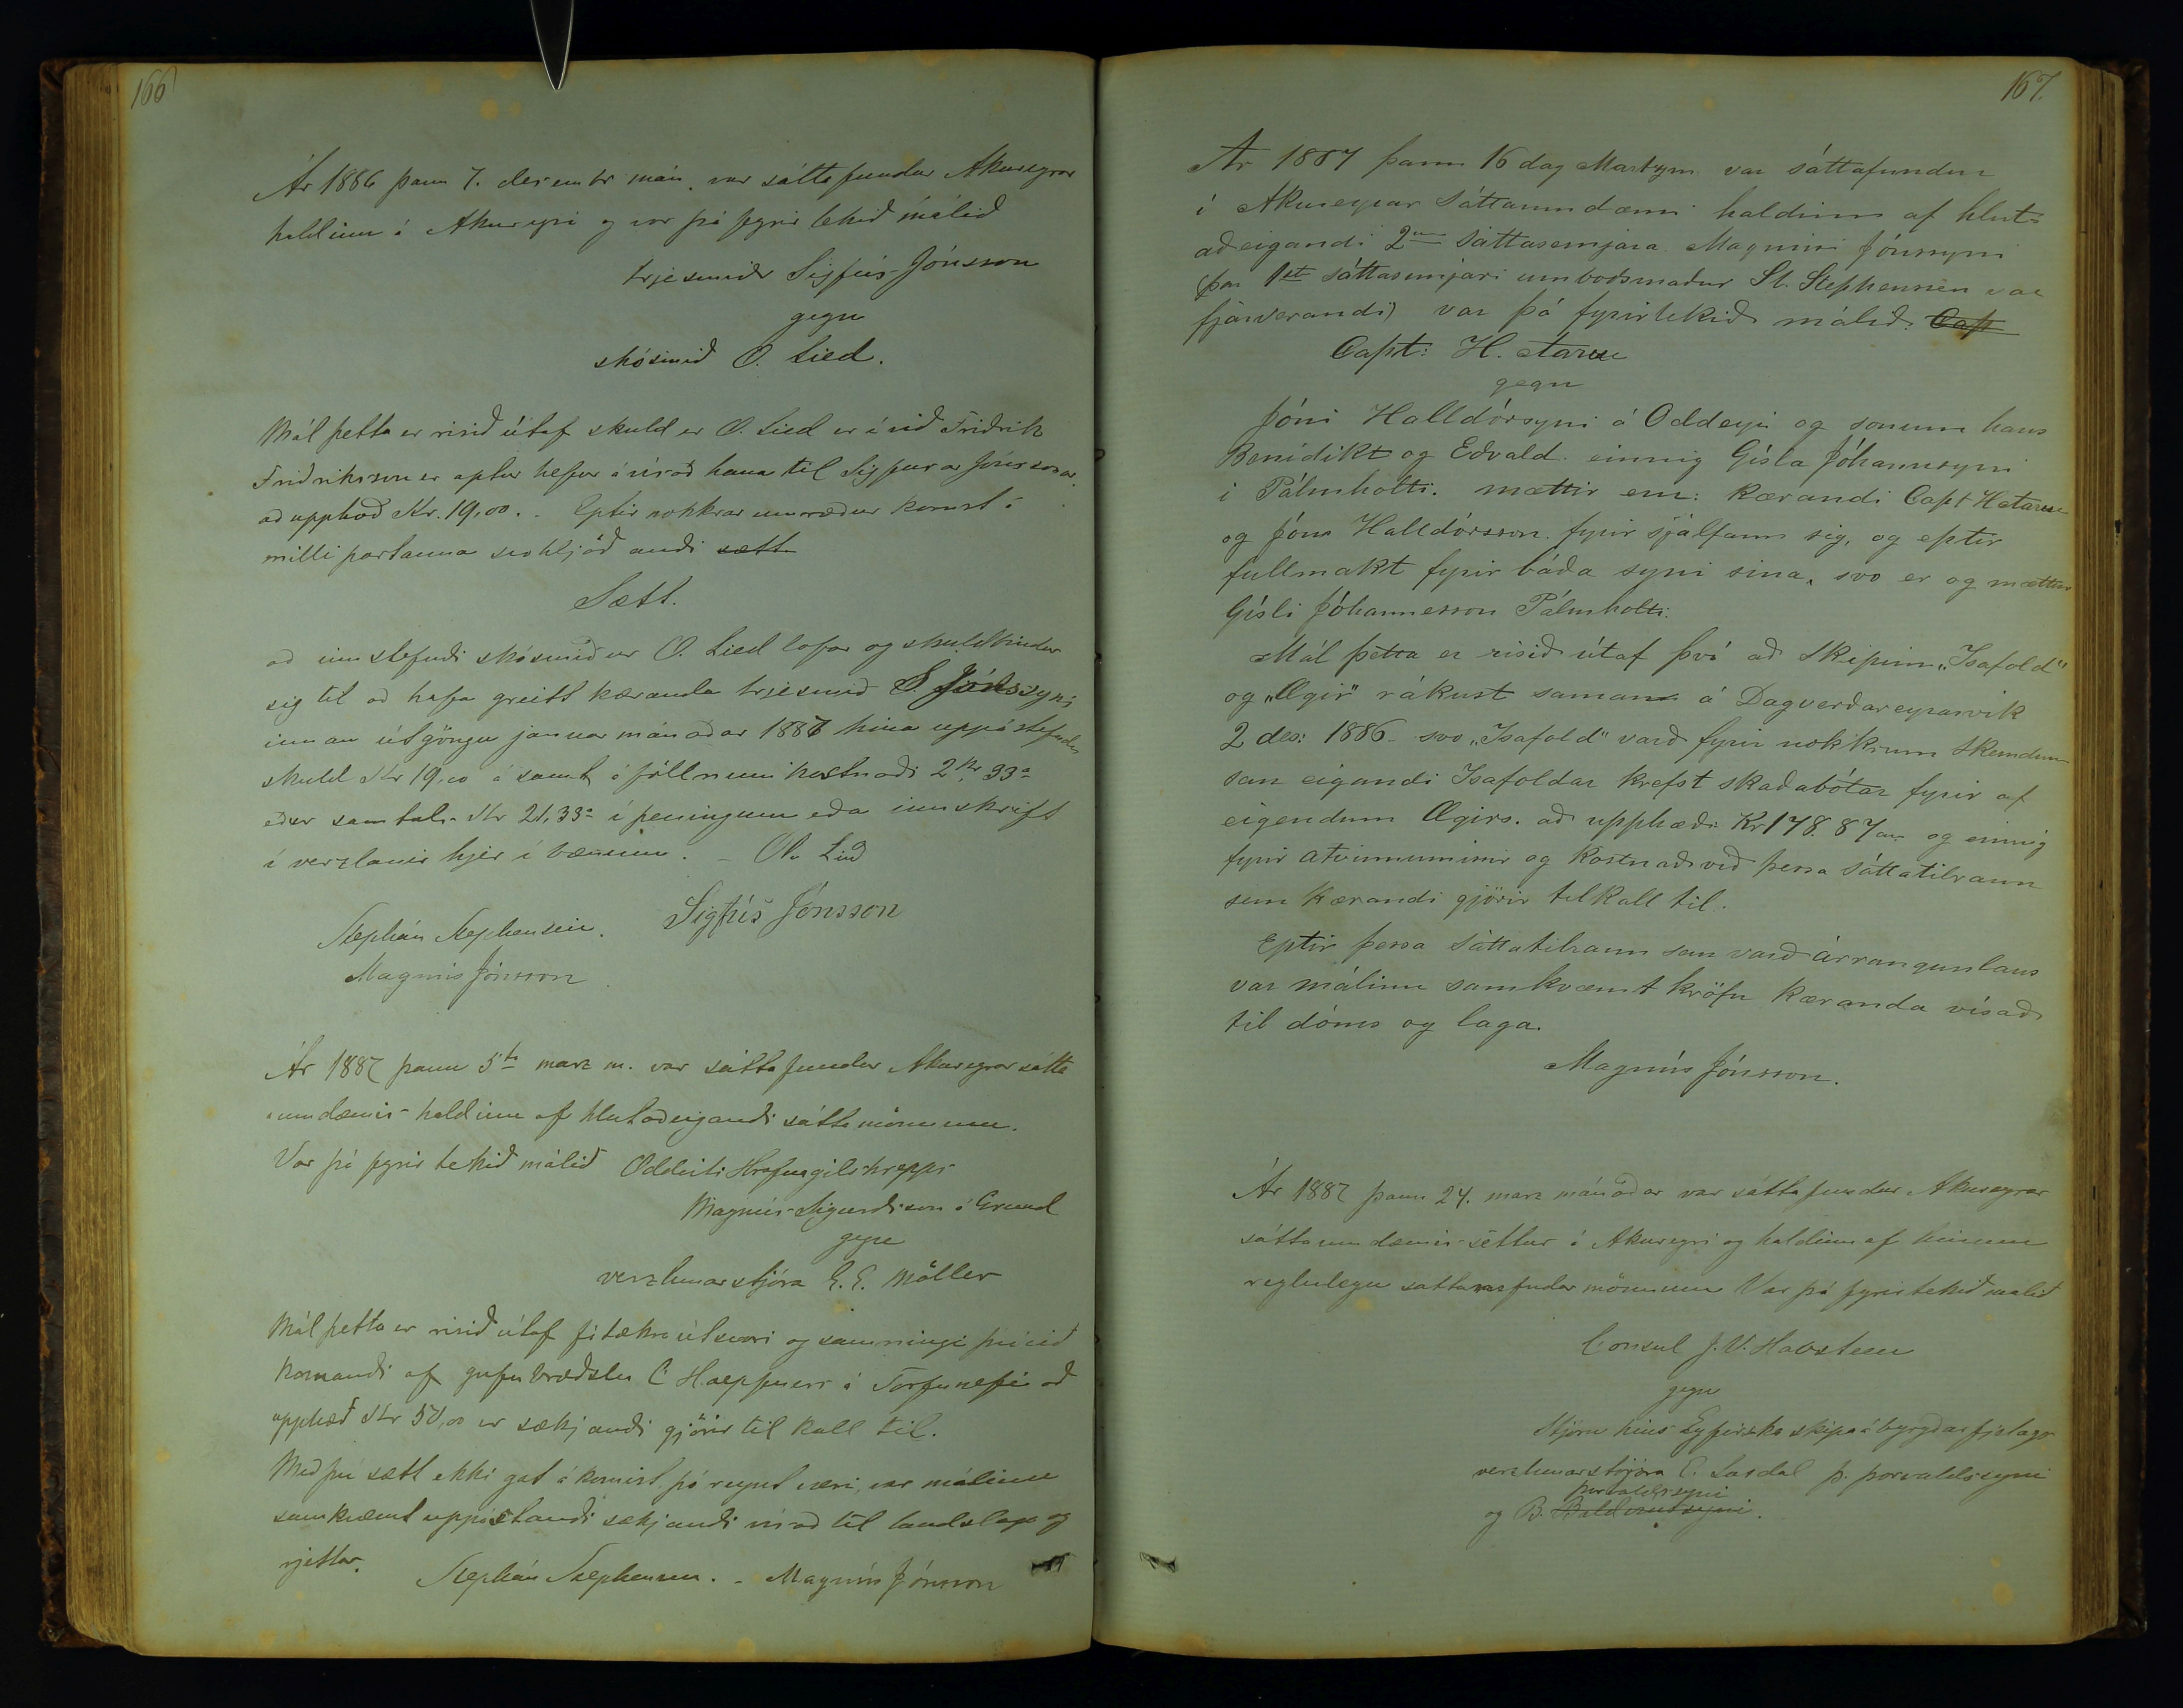 166
Ár 1886 þann 7. desembr mán. var sáttafundur Akureyrar
haldinn á Akureyri og var þá fyrir tekið málið
trjesmiðr Sigfús Jónsson
gegn
skósmið O. Lied.
Mál þetta er risið útaf skuld er O. Lied er í við Friðrik
Friðriksson er aptur hefur ávísað hana til Sigfusar Jónssonar
að upphæð Kr. 19,00. - Eptir nokkrar umræður komst á
milli partanna svohljóðandi sætt
Sætt.
að innstefndi skósmiður O. Lied lofar og skuldbindur
sig til að hafa greitt kæranda trjesmið S. Jónssyni
innan útgöngu januar mánaðar 1887 hina uppástefndu
skuld Kr 19,00 ásamt áföllnum kostnaði 2 kr. 33 a
eður samtals Kr 21,33 a í peningum eða innskrift
í verzlanir hjer í bænum. - O. Lied
Sigfús Jónsson
Stephán Stephensen.
Magnús Jónsson
Ár 1887 þann 5ta marz m. var sáttafundur Akureyrar sátta
umdæmis haldinn af hlutaðeigandi sáttamönnum.
Var þá fyrir tekið málið Oddviti Hrafnagilshrepps
Magnús Sigurðsson á Grund
gegn
verzlunarstjóra E. E. Möller
Mál þetta er risið útaf fátækraútsvari og samningi því við
komandi af gufubræðslu C. Hoepfners á Torfunefi að
upphæð Kr 50,00 er sækjandi gjörir til kall til.
Með því sætt ekki gat á komist, þó reynt væri, var málinu
samkvæmt uppástandi sækjandi vísað til landslaga og
rjettar.
Stephán Stephensen. - Magnús Jónsson
167.
Ár 1887 þann 16 dag Martzm. var sáttafundur
í Akureyrar Sáttaumdæmi haldinn af hlut-
aðeigandi 2um Sáttasemjara Magnúsi Jónssyni
(þar 1sti sáttasemjari umboðsmaður St. Stephensen var
fjærverandi) var þá fyrirtekið málið. Cap
Capt: H.
gegn
Jóni Halldórssyni á Oddeyri og sonum hans
Benidikt og Edvald. einnig Gísla Jóhannssyni
í Pálmholti. mættir eru: kærandi Capt H
og Jóns Halldórsson. fyrir sjálfann sig, og eptir
fullmakt fyrir báða syni sina, svo er og mættur
Gísli Jóhannesson Pálmholti.
Mál þetta er risið útaf því að skipinn „Isafold"
og „Ægir" rákust saman á Dagverðareyrarvik
2 des: 1886 - svo „Isafold" varð fyrir nokkrum skemdum
sem eigandi Isafoldar krefst skaðabótar fyrir af
eigendum Ægirs. að upphæð Kr 178. 87 au og einnig
fyrir atvinnumissir og kostnað við þessa sáttatilraun
sem kærandi gjörir tilkall til.
Eptir þessa sáttatilraun sem varð árrangurslaus
var málinu samkvæmt kröfu kæranda vísað
til dóms og laga.
Magnús Jónsson.
Ár 1887 þann 24. marz mánaðar var sáttafundur Akureyrar
sáttaumdæmis settur á Akureyri og haldinn af hinum
reglulegu sáttanefndarmönnum Var þá fyrirtekið malið
Consul J. V. Havsteen
gegn
Stjórn hins Eyfirzka skipaábyrgðarfjelags
verzlunarstjóra E. Laxdal þ. þorvaldssyni
þorvaldssyni
og B. Baldvinssyni.